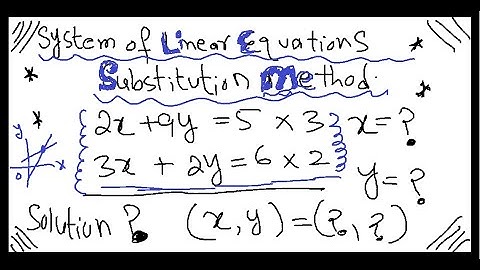 System of Linear Equations
Substitution Method.
2x + 9y = 5 × 3 x = ?
3x + 2y = 6 × 2
y = ?
y
x
0
Solution ? (x, y) = (?, ?)